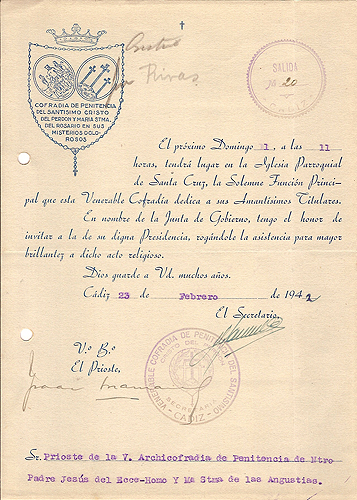 COFRADIA DE PENITENCIA
DEL SANTISIMO CRISTO
DEL PERDON Y MARIA STMA.
DEL ROSARIO EN SUS
MISTERIOS DOLO-
ROSOS
Rivas
SALIDA
20
CADIZ
El próximo Domingo 1, a las 11
horas, tendrá lugar en la Iglesia Parroquial
de Santa Cruz, la Solemne Función Princi-
pal que esta Venerable Cofradía dedica a sus Amantísimos Titulares.
En nombre de la Junta de Gobierno, tengo el honor de
invitar a la de su digna Presidencia, rogándole la asistencia para mayor
brillantez a dicho acto religioso.
Dios guarde a Vd. muchos años.
Cádiz 23 de Febrero de 1942
El Secretario,
V.º B.º
El Prioste,
VENERABLE COFRADIA DE PENITENCIA DEL SANTISIMO
CRISTO DEL
SECRETARIA
- CADIZ -
Sr. Prioste de la V. Archicofradia de Penitencia de Ntro
Padre Jesús del Ecce-Homo Y Mª Stma de las Angustias.